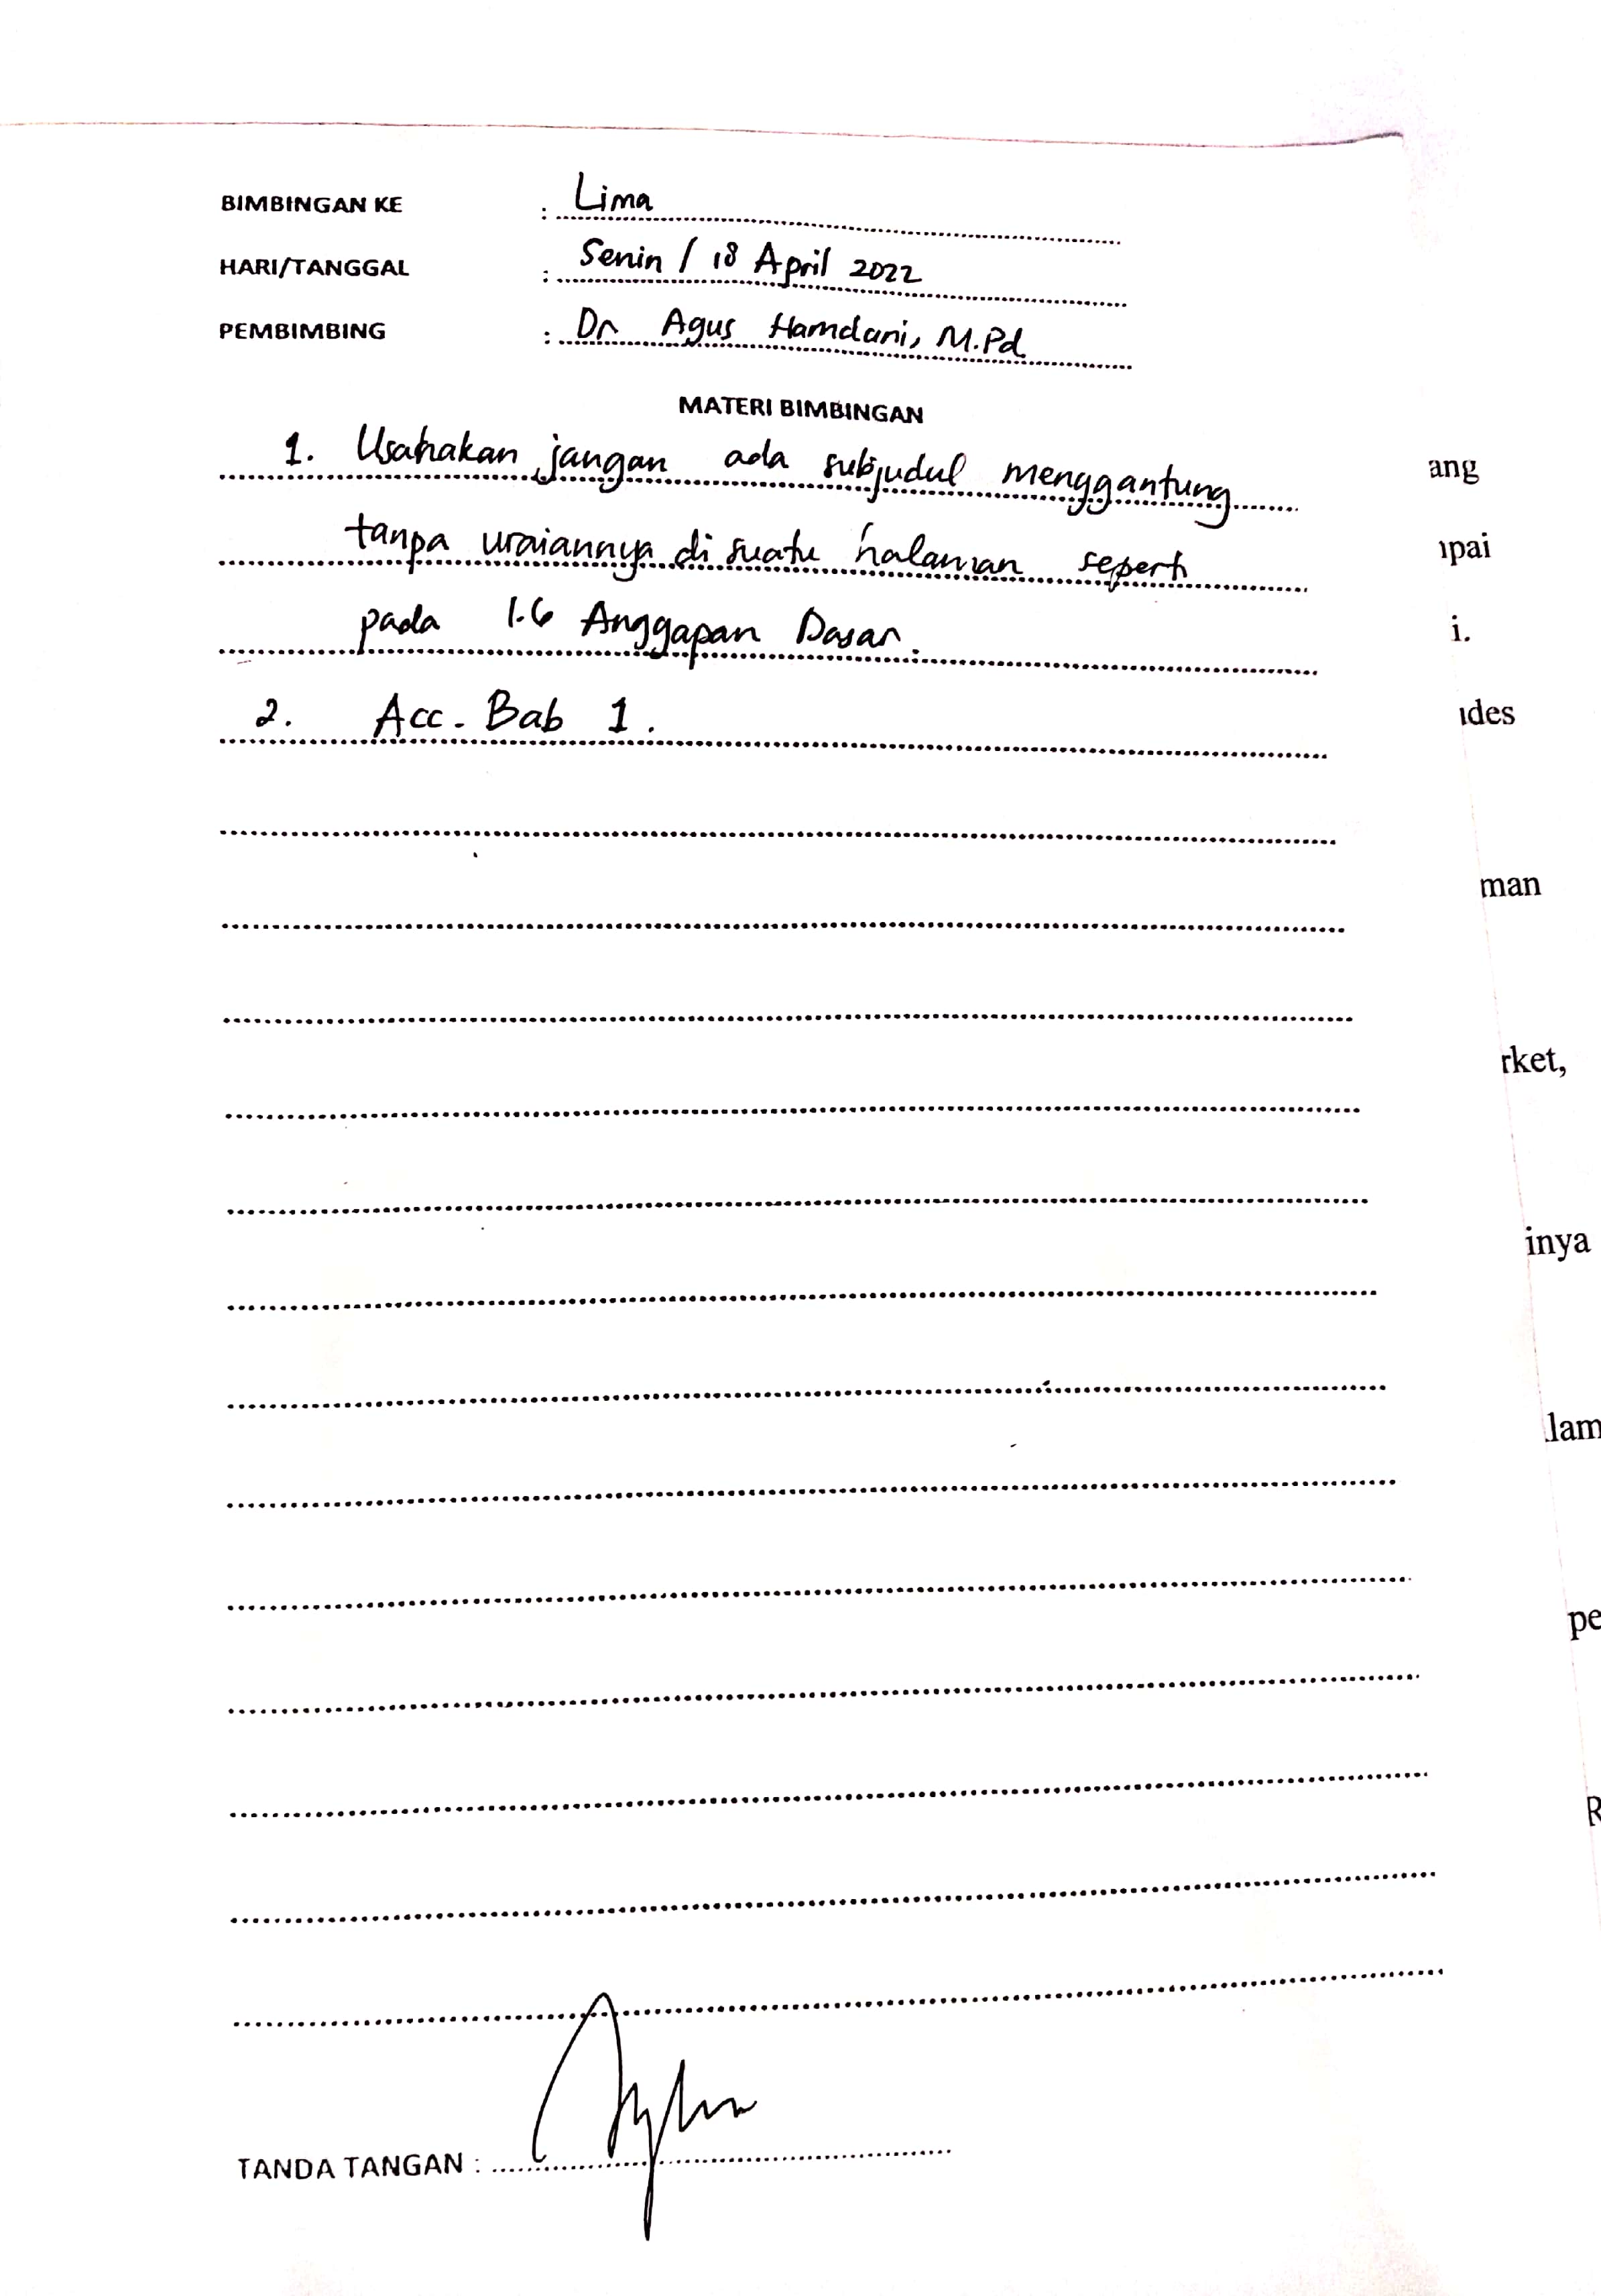 BIMBINGAN KE : Lima
HARI/TANGGAL : Senin / 18 April 2022
PEMBIMBING : Dr Agus Hamdani, M.Pd
MATERI BIMBINGAN
1. Usahakan jangan ada subjudul menggantung
tanpa uraiannya di suatu halaman seperti
pada 1.6 Anggapan Dasar.
2. Acc. Bab 1.
ang
pai
i.
des
man
rket,
inya
lam
pe
R
TANDA TANGAN :